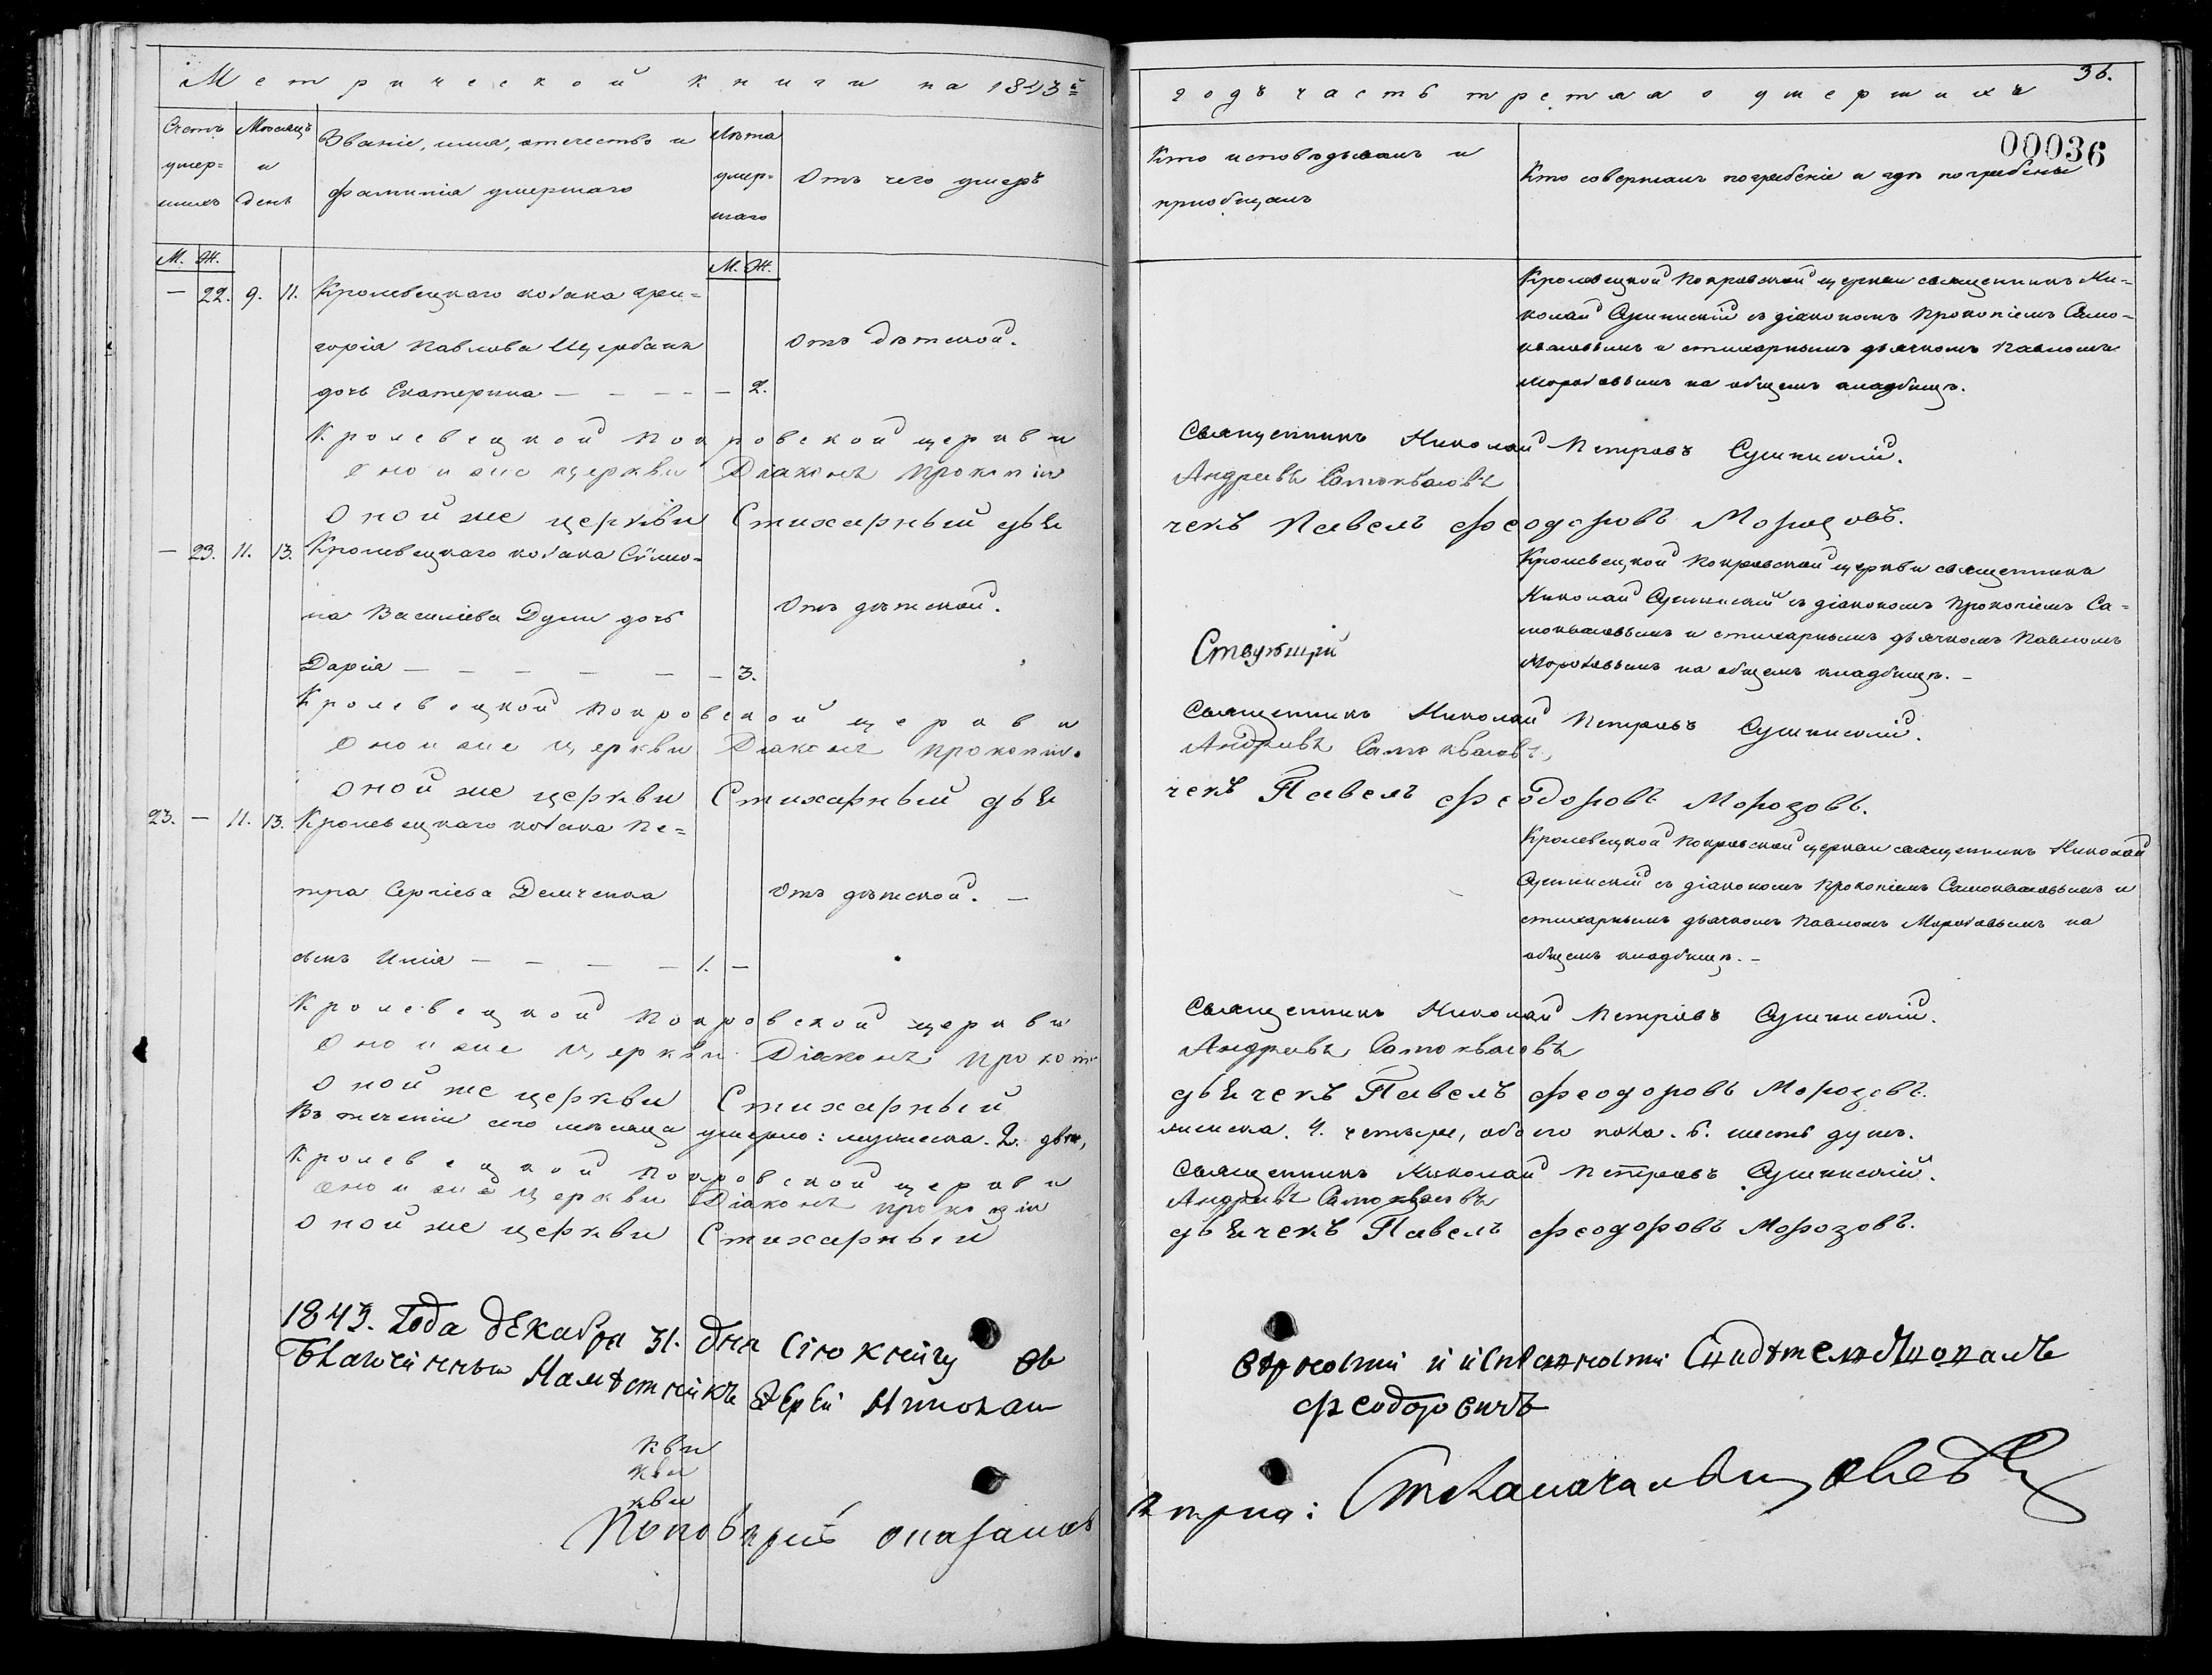 Метрической книги на 1843й
Счетъ умер= шихъ
Мѣсяцъ и день
Званіе, имя, отечество и фамилія умершаго
Лѣта умер= шаго
Отъ чего умеръ
М. Ж.
М. Ж.
— 22. 9. 11. Кролевецкаго козака Гри=
горія Павлова Щербака
Отъ дѣтской.
дочь Екатерина — — — — — 2.
Кролевецкой Покровской церкви
Оной же церкви Діаконъ Прокопій
Оной же церкви Стихарный дья
— 23. 11. 13. Кролевецкаго козака Сѵмо=
на Василіева Дули дочь
Отъ дѣтской.
Дарія — — — — — — 3.
Кролевецкой Покровской церкви
Оной же церкви Діаконъ Прокопій
Оной же церкви Стихарный дья
23. — 11. 13. Кролевецкаго козака Пе=
тра Сергіева Демченка
Отъ дѣтской. —
сынъ Илія — — — — 1. —
Кролевецкой Покровской церкви
Оной же церкви Діаконъ Прокопій
Оной же церкви Стихарный
Въ теченіи сего мѣсяца умерло: мужеска. 2. два,
Кролевецкой Покровской церкви
Оной же церкви Діаконъ Прокопій
Оной же церкви Стихарный
1843. Года декабря 31. дня Сію книгу въ
Благочинный Намѣстникъ Іерей Николай
кви
кви
кви
По повѣрки оказалась
36.
годъ часть третяя о умершихъ
00036
Кто исповѣдывалъ и
пріобщалъ
Кто совершалъ погребеніе и гдѣ погребены
Кролевецкой Покровской церкви священникъ Ни=
колай Сушинскій съ діакономъ Прокопіемъ Само=
квасовымъ и стихарнымъ дьячкомъ Павломъ
Морозовымъ на общемъ кладбищѣ.
Священникъ Николай Петровъ Сушинскій.
Андреевъ Самоквасовъ
чекъ Павелъ Феодоровъ Морозовъ.
Кролевецкой Покровской церкви священникъ
Николай Сушинскій съ діакономъ Прокопіемъ Са=
моквасовымъ и стихарнымъ дьячкомъ Павломъ
Морозовымъ на общемъ кладбищѣ. —
Священникъ Николай Петровъ Сушинскій.
Андреевъ Самоквасовъ,
чекъ Павелъ Феодоровъ Морозовъ.
Кролевецкой Покровской церкви священникъ Николай
Сушинскій съ діакономъ Прокопіемъ Самоквасовымъ и
стихарнымъ дьячкомъ Павломъ Морозовымъ на
общемъ кладбищѣ. —
Священникъ Николай Петровъ Сушинскій.
Андреевъ Самоквасовъ
дьячекъ Павелъ Феодоровъ Морозовъ.
женска. 4. четыре, обоего пола. 6. шесть душъ.
Священникъ Николай Петровъ Сушинскій.
Андреевъ Самоквасовъ
дьячекъ Павелъ Феодоровъ Морозовъ.
вѣрности и исправности Свидѣтельствовалъ
Феодоровичъ